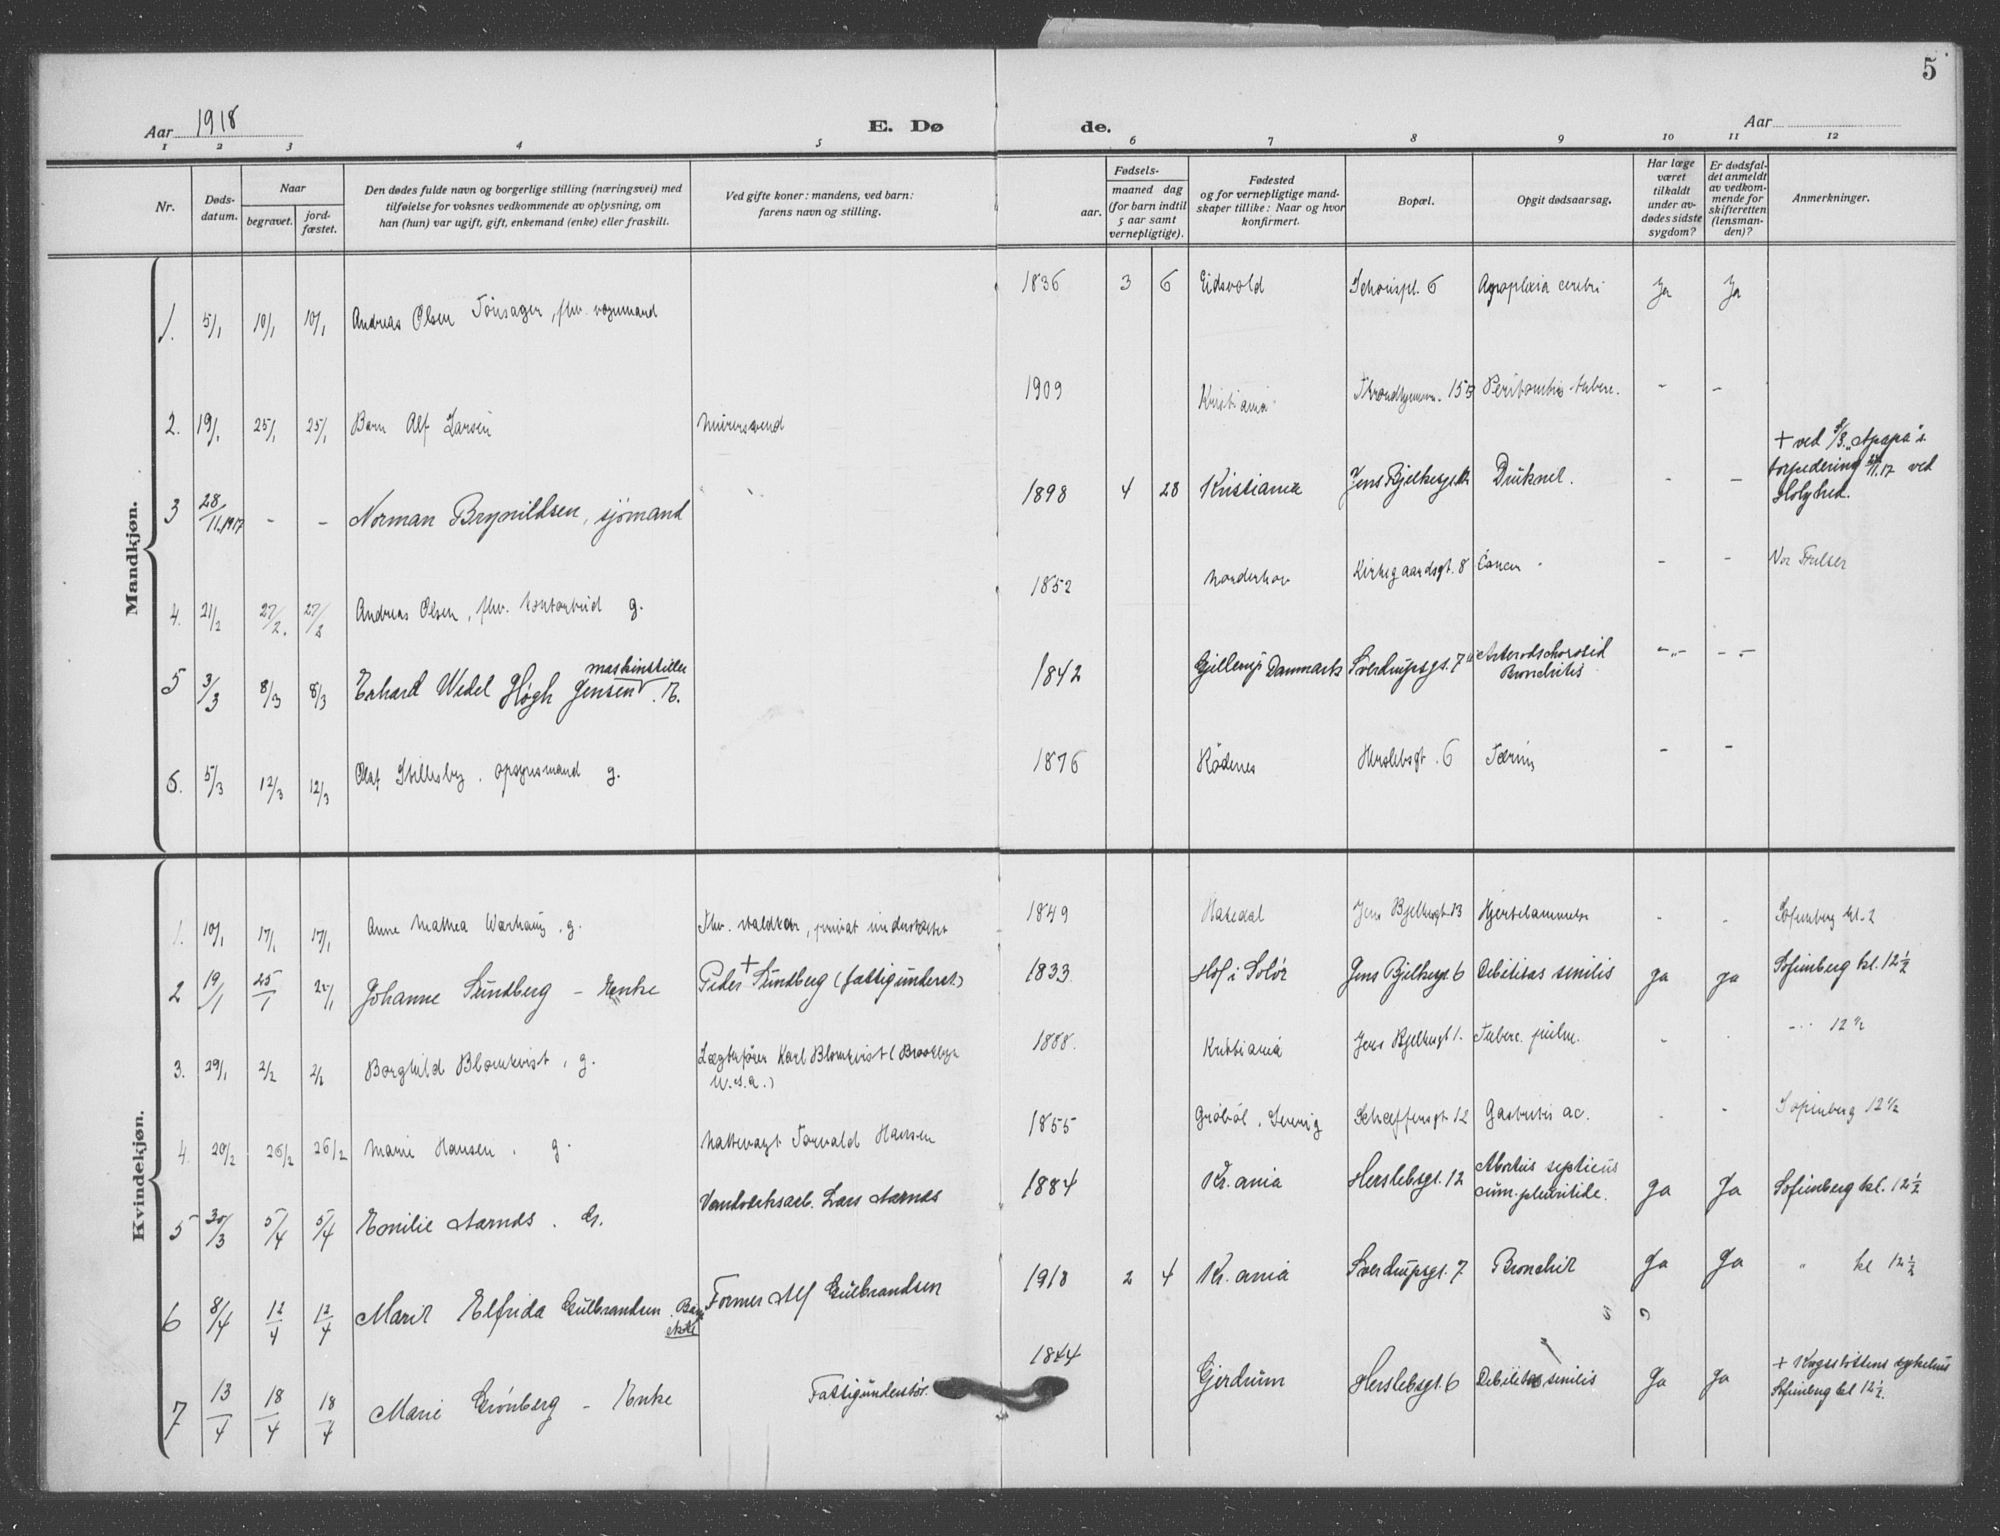 5
Aar 1918 E. Dø de. Aar
1 2 3 4 5 6 7 8 9 10 11 12
Nr. Døds-datum. Naar begravet. jord-fæstet. Den dødes fulde navn og borgerlige stilling (næringsvei) med tilføielse for voksnes vedkommende av oplysning, om han (hun) var ugift, gift, enkemand (enke) eller fraskilt. Ved gifte koner: mandens, ved barn: farens navn og stilling. Fødsels- aar. maaned dag (for barn indtil 5 aar samt vernepligtige). Fødested og for vernepligtige mand-skaper tillike: Naar og hvor konfirmert. Bopæl. Opgit dødsaarsag. Har læge været tilkaldt under av-dødes sidste sygdom? Er dødsfal-det anmeldt av vedkom-mende for skifteretten (lensman-den)? Anmerkninger.
Mandkjøn.
1. 5/1 10/1 10/1 Andreas Olsen Tonsager, fhv. vognmand 1836 3 6 Eidsvold Schouspl. 6 Apoplexia cerebri Ja Ja
2. 19/1 25/1 25/1 Barn Alf Larsen murersvend 1909 Kristiania 15 - -
3 28/11.1917 - - Norman Brynildsen, sjømand 1898 4 28 Kristiania Jens Bjelkesgt. Druknet. - - + ved S/S. "Apapa"s torpedering 28/11.17 ved Holyhed.
4. 21/2 27/2. 27/2 Andreas Olsen, fhv. g. 1852 Norderhov Kirkegaardsgt. 8 Cancer - - Vor Frelser
5 3/3 8/3 8/3 Erhard Wedel Høgh Jensen maskinstiller. E. 1842 Gjellerup Danmark Sverdrupsgt. 7 Bronchitis -„- -„-
6. 5/3 12/3 12/3 Olaf g. 1876 Rødenes Herslebsgt. 6 Tæring - -
Kvindekjøn.
1. 10/1 17/1 17/1 Anne Mathea g. Fhv. privat understøttet 1849 Jens Bjelkesgt. 13 Hjertelammelse - - Sofienberg kl. 2
2 19/1 25/1 25/1 Johanne Sundberg - Enke Peder + Sundberg (fattigunderst.) 1833 Hof i Solør Jens Bjelkesgt. 6 Debilitas senilis Ja Ja Sofienberg kl. 12 1/2
3. 29/1 2/2 2/2 Borghild Blomkvist, g. Karl Blomkvist (Brooklyn U.S.A.) 1888. Kristiania Jens Bjelkesgt 1. Tuberc. pulm. - - -„- 12 1/2
4. 20/2 26/2 26/2 Marie Hansen. g. Nattevagt Torvald Hansen 1855 Sverig Schæffersgt 12 Gastritis ac. - - Sofienberg 12 1/2
5 30/3 5/4 5/4 Emilie Aarnds. G. Vandverksarb. Lars Aarnds 1884 Kr.ania Herslebsgt. 12 Abortus septicus cum. pleuritide. Ja Ja Sofienberg kl. 12 1/2
6 8/4 12/4 12/4 Marit Elfrida Gulbrandsen. Barn ekte Former Alf Gulbrandsen 1918 2 4 Kr.ania Sverdrupsgt. 7 Bronchit Ja Ja „ kl 12 1/2
7 13/4 18/4 18/4 Marie Grønberg - Enke Fattigunderstøt. 1844 Gjerdrum Herslebsgt. 6 Debilitas senilis Ja Ja + Krogsstøttens sykehus Sofienberg kl 12 1/2.